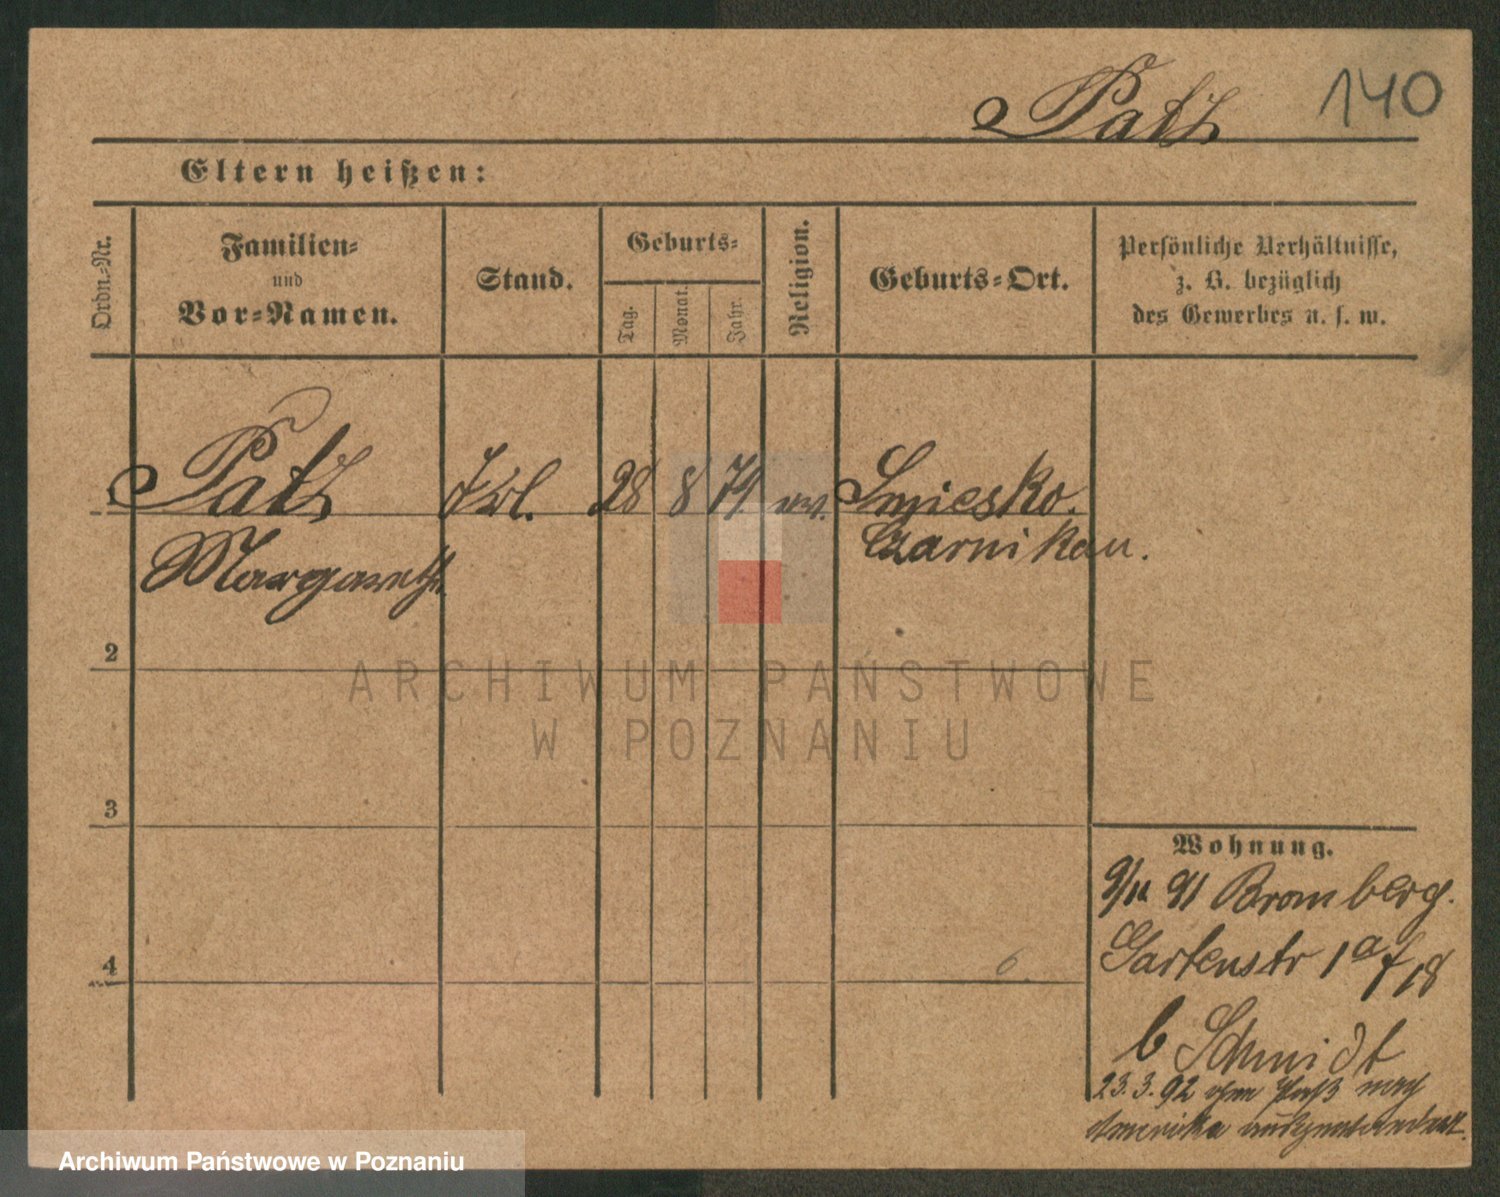 Patz 140
Eltern heißen:
Ordn.-Nr.
Familien-
und
Vor-Namen.
Stand.
Geburts-
Tag.
Monat.
Jahr.
Religion.
Geburts-Ort.
Persönliche Verhältnisse,
z. B. bezüglich
des Gewerbes u. s. w.
1 Patz Frl. 28 8 74 ev. Smiesko.
Margarethe Czarnikau.
2
3
4
Wohnung.
9/11 91 Bromberg.
Gartenstr 1a
b Schmidt
23.3.92 ohne Paß nach
Amerika ausgewandert.
ARCHIWUM PAŃSTWOWE
W POZNANIU
Archiwum Państwowe w Poznaniu